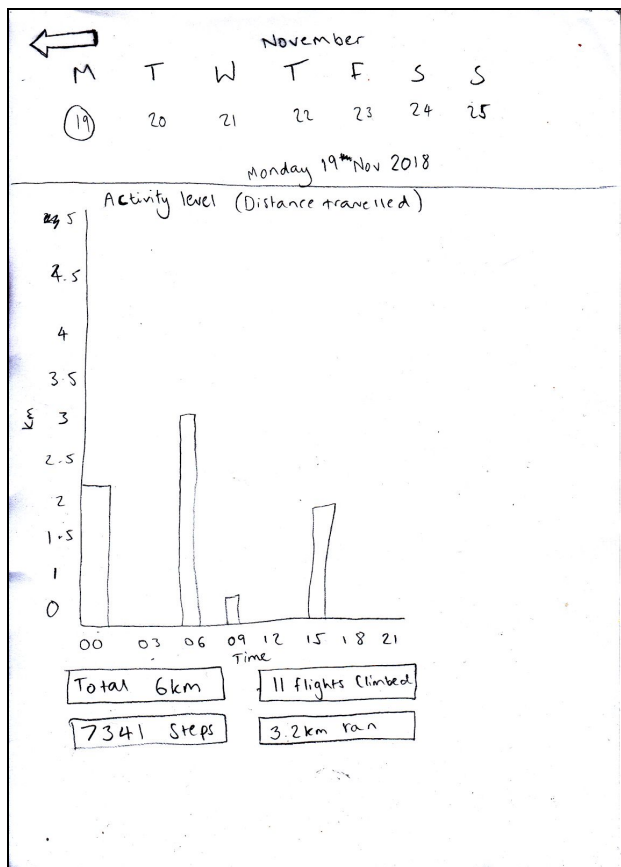 November
M T W T F. S S
19 20 21 22 23 24 25
Monday 19th Nov 2018
Activity level (Distance travelled)
5
4.5
4
3.5
3
Km
2.5
2
1.5
1
0
00 03 06 09 12 15 18 21
Time
Total 6km
11 flights Climbed
7341 Steps
3.2km ran